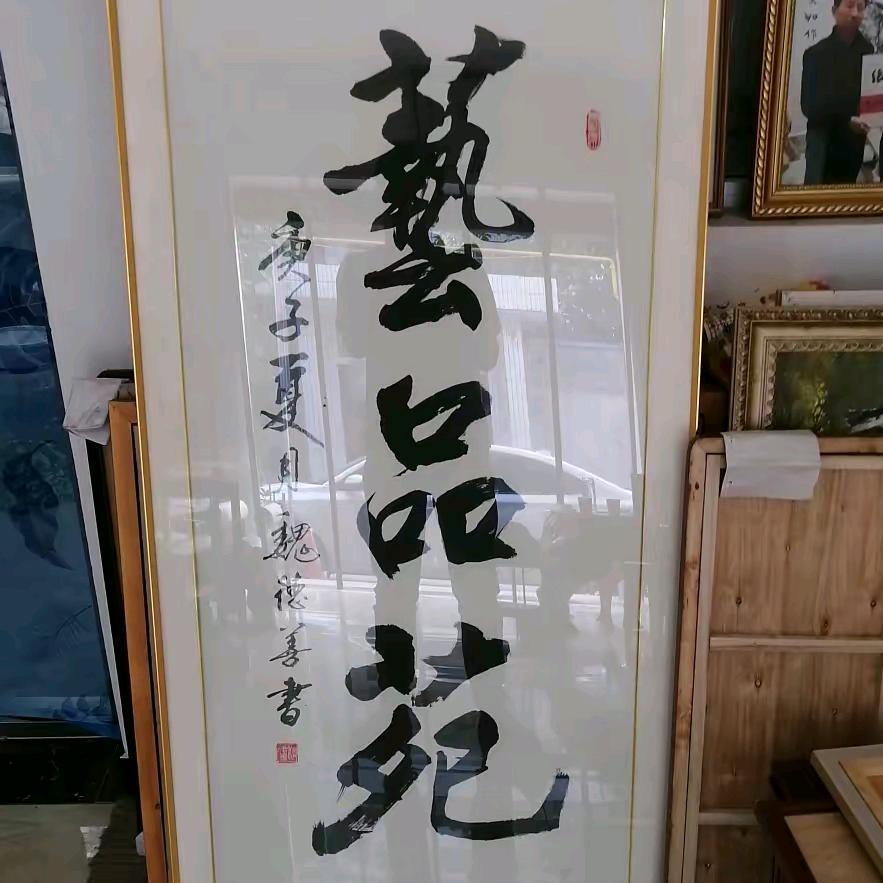 藝品苑
庚子夏月魏德善書